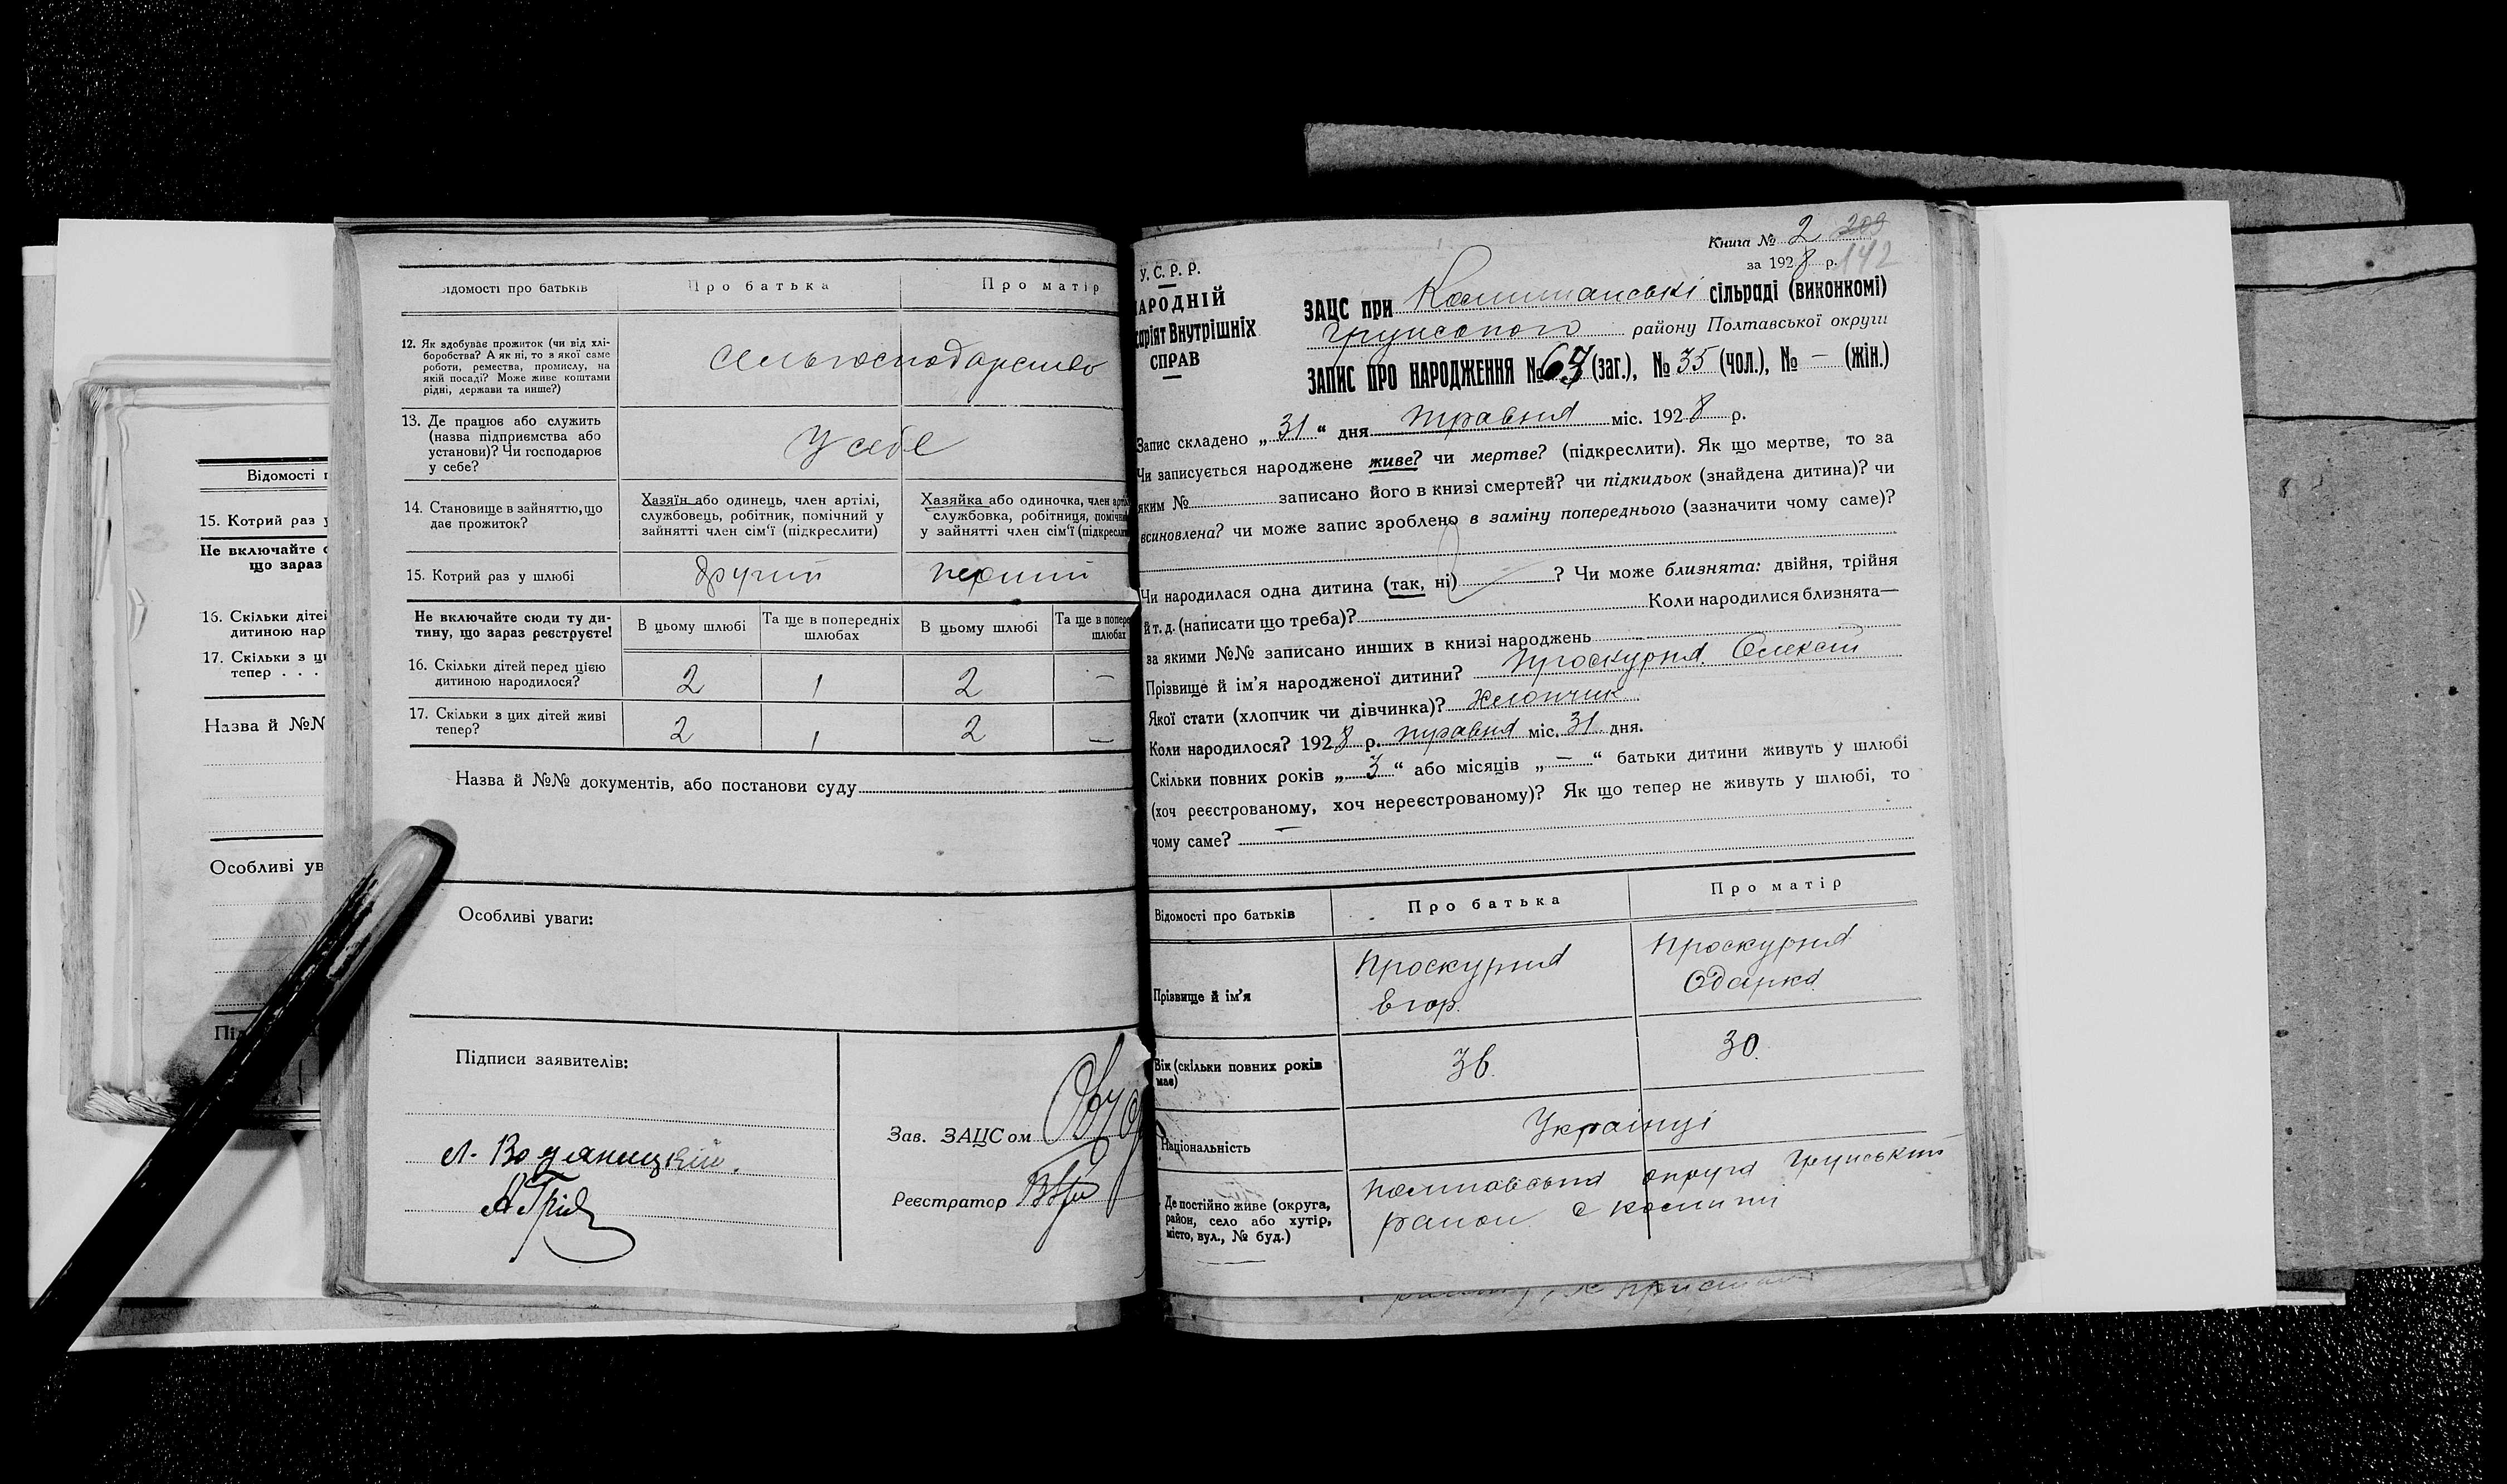 Відомості п
15. Котрий раз у
Не включайте с
що зараз
16. Скільки дітей
дитиною нар
17. Скільки з ци
тепер . . .
Назва й №№
Особливі ув
Під
ідомості про батьків
Про батька
Про матір
12. Як здобуває прожиток (чи від хлі-
боробства? А як ні, то з якої саме
роботи, ремества, промислу, на
якій посаді? Може живе коштами
рідні, держави та инше?)
сельгосподарство
13. Де працює або служить
(назва підприємства або
установи)? Чи господарює
у себе?
У себе
14. Становище в зайняттю, що
дає прожиток?
Хазяїн або одинець, член артілі,
службовець, робітник, помічний у
зайнятті член сім'ї (підкреслити)
Хазяйка або одиночка, член артіл
службовка, робітниця, помічн
у зайнятті член сім'ї (підкресли
15. Котрий раз у шлюбі
другий
перший
Не включайте сюди ту ди-
тину, що зараз реєструєте!
В цьому шлюбі
Та ще в попередніх
шлюбах
В цьому шлюбі
Та ще в попере
шлюбах
16. Скільки дітей перед цією
дитиною народилося?
2 1 2 —
17. Скільки з цих дітей живі
тепер?
2 1 2 —
Назва й №№ документів, або постанови суду
Особливі уваги:
Підписи заявителів:
Зав. ЗАЦСом
Реєстратор
Книга № 2 209
за 1928 р. 142
У. С. Р. Р.
АРОДНІЙ
саріят Внутрішніх
СПРАВ
ЗАЦС при сільраді (виконкомі)
Грунського району Полтавської округи
ЗАПИС ПРО НАРОДЖЕННЯ № 67 (заг.), № 35 (чол.), № — (жін.)
Запис складено „31“ дня травня міс. 1928 р.
Чи записується народжене живе? чи мертве? (підкреслити). Як що мертве, то за
яким № записано його в книзі смертей? чи підкидьок (знайдена дитина)? чи
всиновлена? чи може запис зроблено в заміну попереднього (зазначити чому саме)?
Чи народилася одна дитина (так, ні) ? Чи може близнята: двійня, трійня
й т. д. (написати що треба)? Коли народилися близнята—
за якими №№ записано инших в книзі народжень
Прізвище й ім'я народженої дитини? Проскурня Олексій
Якої стати (хлопчик чи дівчинка)? Хлопчик
Коли народилося? 1928 р. травня міс. 31 дня.
Скільки повних років „3“ або місяців „—“ батьки дитини живуть у шлюбі
(хоч реєстрованому, хоч нереєстрованому)? Як що тепер не живуть у шлюбі, то
чому саме? —
Відомості про батьків
Про батька
Про матір
Прізвище й ім'я
Проскурня
Егор.
Проскурня
Одарка
Вік (скільки повних років
має)
36.
30.
Національність
Українці
Де постійно живе (округа,
район, село або хутір,
місто, вул., № буд.)
Полтавська округа Грунський
район с